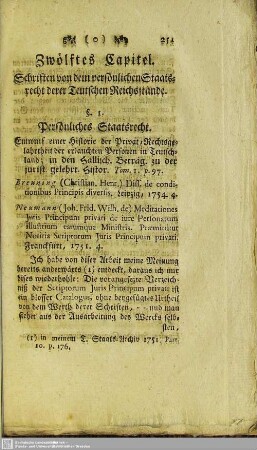 ( o ) 251
Zwölftes Capitel.
Schriften von dem persönlichen Staats-
recht derer Teutschen Reichsstände.
§. 1.
Persönliches Staatsrecht.
Entwurf einer Historie der Privat-Rechtsge-
lahrtheit der erlauchten Personen in Teutsch-
land; in den Hallisch. Beyträg. zu der
jurist. gelehrt. Histor. Tom. 1. p. 97.
Breuning (Christian. Henr.) Diss. de condi-
tionibus Principis diversis, Leipzig, 1754. 4.
Neumann (Joh. Frid. Wilh. de) Meditationes
Juris Principum privati de iure Personarum
illustrium earumque Ministris. Præmittitur
Notitia Scriptorum Juris Principum privati.
Franckfurt, 1751. 4.
Ich habe von diser Arbeit meine Meinung
bereits anderwärts (1) entdeckt, daraus ich nur
dises wiederhohle: Die vorangesezte Verzeich-
niß der Scriptorum Juris Principum privati ist
ein blosser Catalogus, ohne beygefügtes Urtheil
von dem Werth derer Schriften, - - und man
siehet aus der Ausarbeitung des Wercks selb-
sten,
(1) in meinem T. Staats-Archiv 1751, Part.
10. p. 176,